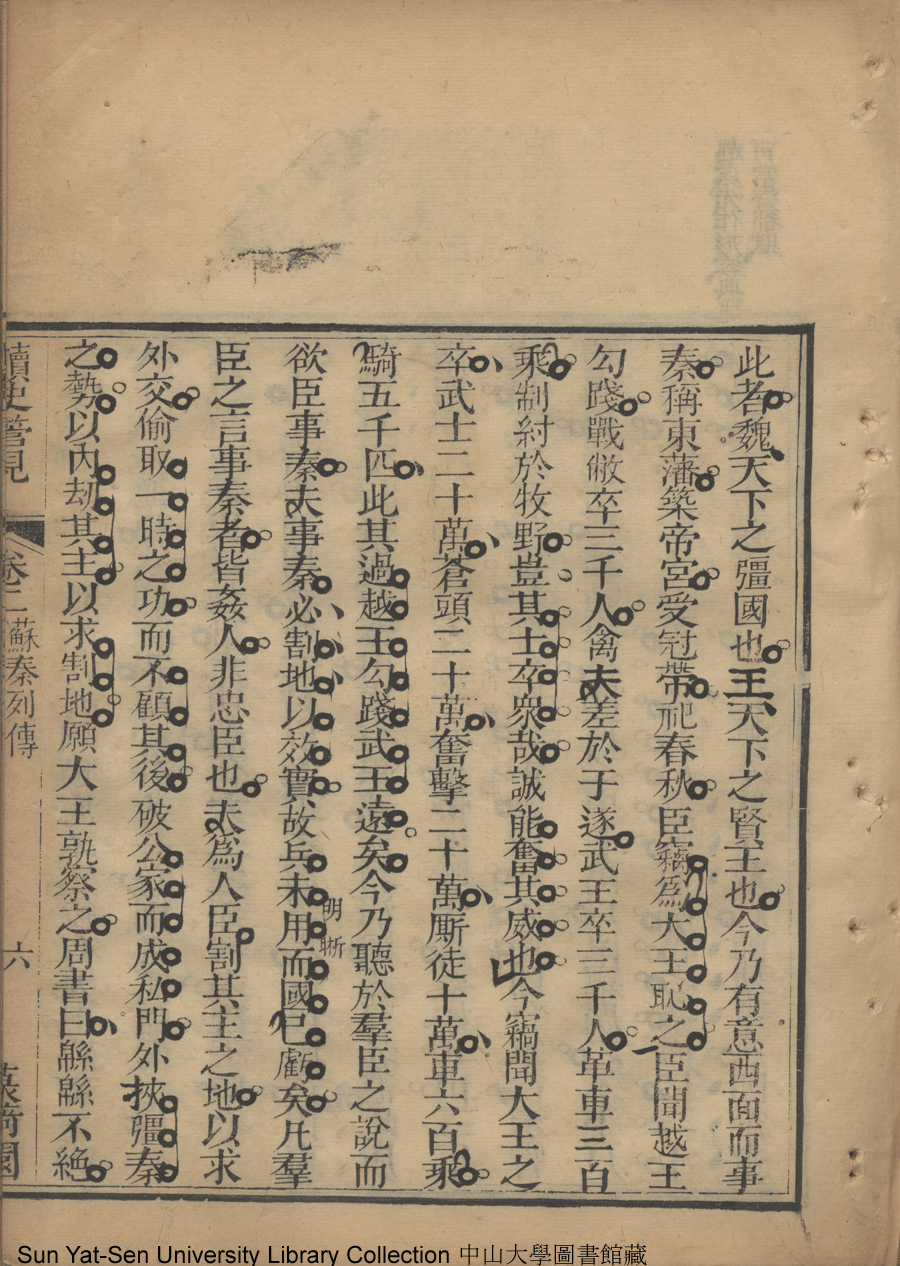 此者魏天下之彊國也王天下之賢主也今乃有意西面而事
秦稱東藩築帝宮受冠帶祀春秋臣竊爲大王恥之臣聞越王
勾踐戰敝卒三千人禽夫差於于遂武王卒三千人革車三百
乘制紂於牧野豈其士卒衆哉誠能奮其威也今竊聞大王之
卒武士二十萬蒼頭二十萬奮擊二十萬厮徒十萬車六百乘
騎五千匹此其過越王勾踐武王遠矣今乃聽於羣臣之說而
欲臣事秦夫事秦必割地以效實故兵未用而國已虧矣凡羣
明晰
臣之言事秦者皆姦人非忠臣也夫爲人臣割其主之地以求
外交偷取一時之功而不顧其後破公家而成私門外挾彊秦
之勢以內劫其主以求割地願大王孰察之周書曰緜緜不絶
讀史管見 卷二 蘇秦列傳 六
Sun Yat-Sen University Library Collection 中山大學圖書館藏